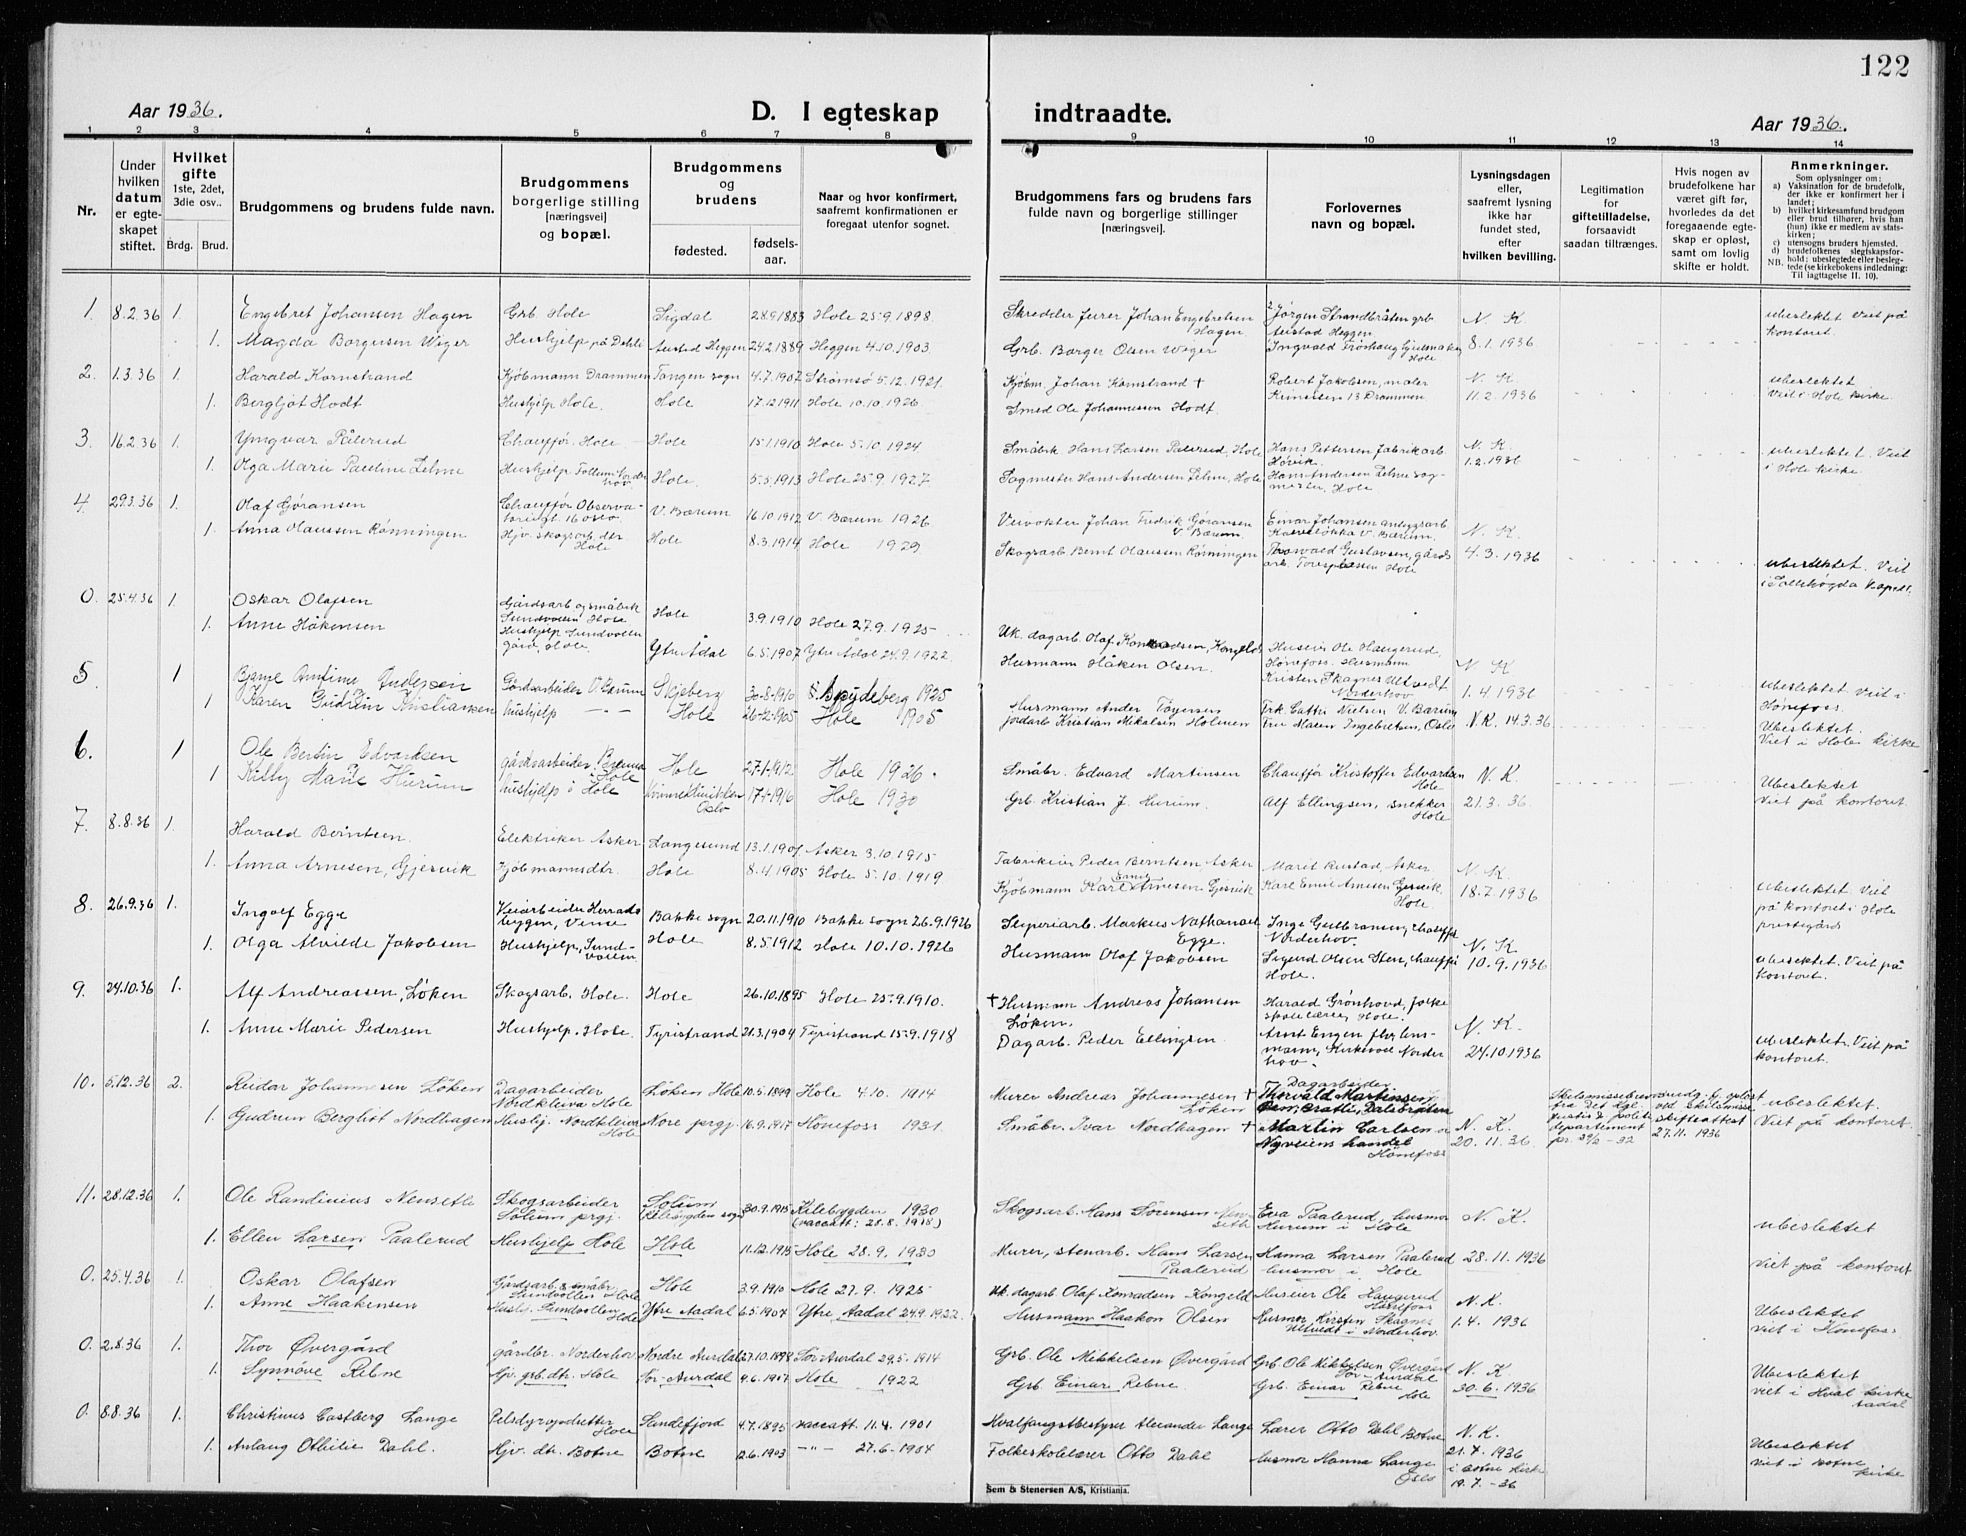 122
Aar 1936.
D. I egteskap
indtraadte.
Aar 1936.
1 2 3 4 5 6 7 8 9 10 11 12 13 14
Nr.
Under hvilken datum er egteskapet stiftet.
Hvilket gifte
1ste, 2det, 3die osv..
Brdg. Brud.
Brudgommens og brudens fulde navn.
Brudgommens borgerlige stilling [næringsvei] og bopæl.
Brudgommens og brudens
fødested.
fødsels-aar.
Naar og hvor konfirmert, saafremt konfirmationen er foregaat utenfor sognet.
Brudgommens fars og brudens fars fulde navn og borgerlige stillinger [næringsvei].
Forlovernes navn og bopæl.
Lysningsdagen eller, saafremt lysning ikke har fundet sted, efter hvilken bevilling.
Legitimation for giftetilladelse, forsaavidt saadan tiltrænges.
Hvis nogen av brudefolkene har været gift før, hvorledes da det foregaaende egteskap er opløst, samt om lovlig skifte er holdt.
Anmerkninger.
Som oplysninger om:
a) Vaksination for de brudefolk, der ikke er konfirmert her i landet;
b) hvilket kirkesamfund brudgom eller brud tilhører, hvis han (hun) ikke er medlem av statskirken;
c) utensogns bruders hjemsted.
d) brudefolkenes slegtskapsforhold; ubeslegtede eller beslegtede (se kirkebokens indledning: NB. Til iagttagelse II. 10).
1. 8.2.36 1. Engebret Johansen Hagen Grb. Hole Sigdal 28.9.1883 Hole 25.9.1898. Skredder Johan Engebretsen Hagen Jørgen Strandbråten grb. N. K. ubeslektet Viet på kontoret.
1. Magda Borgersen Weger Hushjelp på Dehle Austad Heggen 24.2.1889 Heggen 4.10.1903. Grb. Borger Olsen Weger Ingvald Hole 8.1.1936
2. 1.3.36 1. Harald Kornstrand Kjøbmann Drammen Tangen sogn 4.7.1907 Strømsø 5.12.1921. Kjøbm. Johan Kornstrand † Robert Jakobsen, maler 13 Drammen N. K. ubeslektet Viet i Hole kirke.
1. Bergljot Hodt Hushjelp Hole. Hole 17.12.1911 Hole 10.10.1926. Smed Ole Johannesen Hodt. 11.2.1936
3. 16.2.36 1. Yngvar Pålerud Chauffør. Hole Hole 15.1.1910 Hole 5.10.1924 Småbr. Hans Larsen Palerud, Hole Hans Pettersen fabrikarb Høvik. N. K. ubeslektet. Viet i Hole kirke.
1. Olga Marie Pauline Lehne Hushjelp Follum Norderhov. Hole. 5.5.1913 Hole 25.9.1927 Sagmester Hans Andersen Lehne, Hole Hans Andersen Lehne sagmester. Hole 1.2.1936
4. 29.3.36 1. Olaf Gøransen Chauffør Observatoriegt. 16 Oslo. V. Bærum 16.10.1912 V. Bærum 1926 Veivokter Johan Fredrik Gøransen V. Bærum. Einar Johansen anleggsarb. V. Bærum. N. K.
1. Anna Olaussen Rønningen Hjv. skogsarb. dtr. Hole Hole 8.3.1914 Hole 1929 Skogsarb. Bernt Olaussen Rønningen Torvald Gustavsen, gårdsarb. Hole 4.3.1936 ubeslektet. Viet i Sollihøgda kapell.
0. 25.4.36 1. Oskar Olafsen Gårdsarb og småbr. Sundvollen Hole Hole 3.9.1910 Hole 27.9.1925 Uk. dagarb. Olaf Konradsen, Kongeld Huseier Ole Haugerud, Hønefoss.
1. Anne Håkensen Hushjelp Sundvollen gård, Hole. Ytre Ådal 6.5.1907 Ytre Ådal 24.9.1922. Husmann Håken Olsen Husmann Kristen Skagnes Ultvedt Norderhov N. K. 1.4.1936 ubeslektet Viet i Hønefoss.
5. 1 Bjarne Antinus Andersen Gårdsarbeider V. Bærum Skjeberg 30-8-1910 S. Spydeberg 1925 Husmann Ander Frk. Cathr. Nielsen V. Bærum
1 Karen Gudrun Kristiansen hushjelp — " — Hole 1905 Hole 1905 jordarb. Kristian Mikalsen Holmen Fru Maren Ingebretsen, Oslo N. K. 14.3.36 Ubeslektet. Viet i Hole kirke
6. 1 Ole Bertin Edvardsen gårdsarbeider, Hole Hole 27-1-1912 Hole 1926. Småbr. Edvard Martinsen Chauffør Kristoffer Edvardsen Hole N. K. Ubeslektet Viet på kontoret.
1 Killy Marie Hurum hushjelp i Hole Kvinneklinikken Oslo 1916 Hole 1930 Grb. Kristian J. Hurum. Alf Ellingsen, snekker Hole 21.3.36
7. 8.8.36 1. Harald Berntsen. Elektriker Asker Langesund 13.1.1901 Asker 3.10.1915 Fabrikeier Peder Berntsen Asker Marit Rustad, Asker N. K.
1. Anna Arnesen, Gjesvik Kjøbmannsdtr. Hole 8.4.1905 Hole 5.10.1919 Kjøbmann Karl Emil Arnesen Gjesvik Karl Emil Arnesen Gjesvik Hole 18.7.1936 ubeslektet Viet på kontoret i Hole prestegård
8. 26.9.36 1. Ingolf Egge Veiarbeider Herradsbyggen, Bakke sogn 20.11.1910 Bakke sogn 26.9.1926 Sliperiarb. Markus Nathanael Egge. Inge Gulbransen, chauffør Norderhov.
1. Olga Alvilde Jakobsen Hushjelp, Sundvollen Hole 8.5.1912 Hole 10.10.1926 Husmann Olaf Jakobsen Sigurd Olsen Sten, chauffør Hole. N. K. 10.9.1936 ubeslektet. Viet på kontoret.
9. 24.10.36 1. Alf Andreassen, Løken Skogsarb. Hole. Hole 26.10.1895 Hole 25.9.1910. † Husmann Andreas Johansen Løken. Harald Grønhovd, folkeskolelærer, Hole.
1. Anne Marie Pedersen Hushjelp. Hole. Tyristrand 21.3.1904 Tyristrand 15.9.1918 Dagarb. Peder Ellingsen Arnt Engen fhv. lensmann, Norderhov. N. K. 24.10.1936 ubeslektet. Viet på kontoret.
10. 5.12.36 2. Reidar Johannesen Løken Dagarbeider Nordkleiva Hole Løken Hole 10.5.1899 Hole 4.10.1914 Murer Andreas Johannesen Løken † Dagarbeider Thorvald Martinsen Skilsmissebev. fra Det Kgl. Justis & politidepartement 27.11.1936 ubeslektet. Viet på kontoret.
1. Gudrun Bergliot Nordhagen Hushj. Nordkleiva Hole Nore prgj. 16.9.1917 Hønefoss 1931. Småbr. Ivar Nordhagen † Martin Carlsen Nyveiens handel Hønefoss N. K. 20.11.36
11. 28.12.36 1. Ole Randinius Nensetle Skogsarbeider Solum prgj. Solum 30.9.1915 Kilebygden 1930 (vaccatt: 28.8.1918) Skogsarb. Hans Sørensen Nenseth Eva Paalerud, husmor Hurum i Hole N. K. ubeslektet
1. Ellen Larsen Paalerud Hushjelp Hole Hole 11.12.1915 Hole 28.9.1930 Murer, stenarb. Hans Larsen Paalerud Hanna Larsen Paalerud husmor i Hole 28.11.1936 Viet på kontoret
0. 25.4.36 1. Oskar Olafsen Gårdsarb. & småbr. Sundvollen Hole Hole 3.9.1910 Hole 27.9.1925 Uk. dagarb. Olaf Konradsen Kongeld Huseier Ole Haugerud Hønefoss N. K.
1. Anne Haakensen Hushj. Sundvollen Hole Ytre Aadal 6.5.1907 Ytre Aadal 24.9.1922. Husmann Haakon Olsen Husmor Kirsten Skagnes Ultvedt i Norderhov. 1.4.1936 Ubeslektet viet i Hønefoss
0. 2.8.36 1. Thor Øvergård gårdbr. Norderhov Nordre Aurdal 27.10.1898 Sør-Aurdal 29.5.1914 Grb. Ole Mikkelsen Øvergård Grb. Ole Mikkelsen Øvergård Sør-Aurdal N. K.
1. Synnøve Rebne Hjv. grb. dtr. Hole Sør-Aurdal 4.6.1907 Hole 1922 Grb Einar Rebne Grb. Einar Rebne Hole 30.6.1936 Ubeslektet viet i Hval kirke Aadal
0. 8.8.36 1. Christinus Castberg Lange Pelsdyroppdretter Hole Sandefjord 4.7.1895 vaccatt. 11.4.1901 Hvalfangstbestyrer Alexander Lange Lærer Otto Dahl Botne N. K.
1. Anlaug Othilie Dahl. Hjv. dtr. Botne Botne 2.6.1903 — " — 27.6.1904 Folkeskolelærer Otto Dahl Husmor Hanna Lange Oslo 21.7.1936 i Botne kirke 19.7.-36 Ubeslektet viet i Botne kirke
Sem & Stenersen A/S, Kristiania.